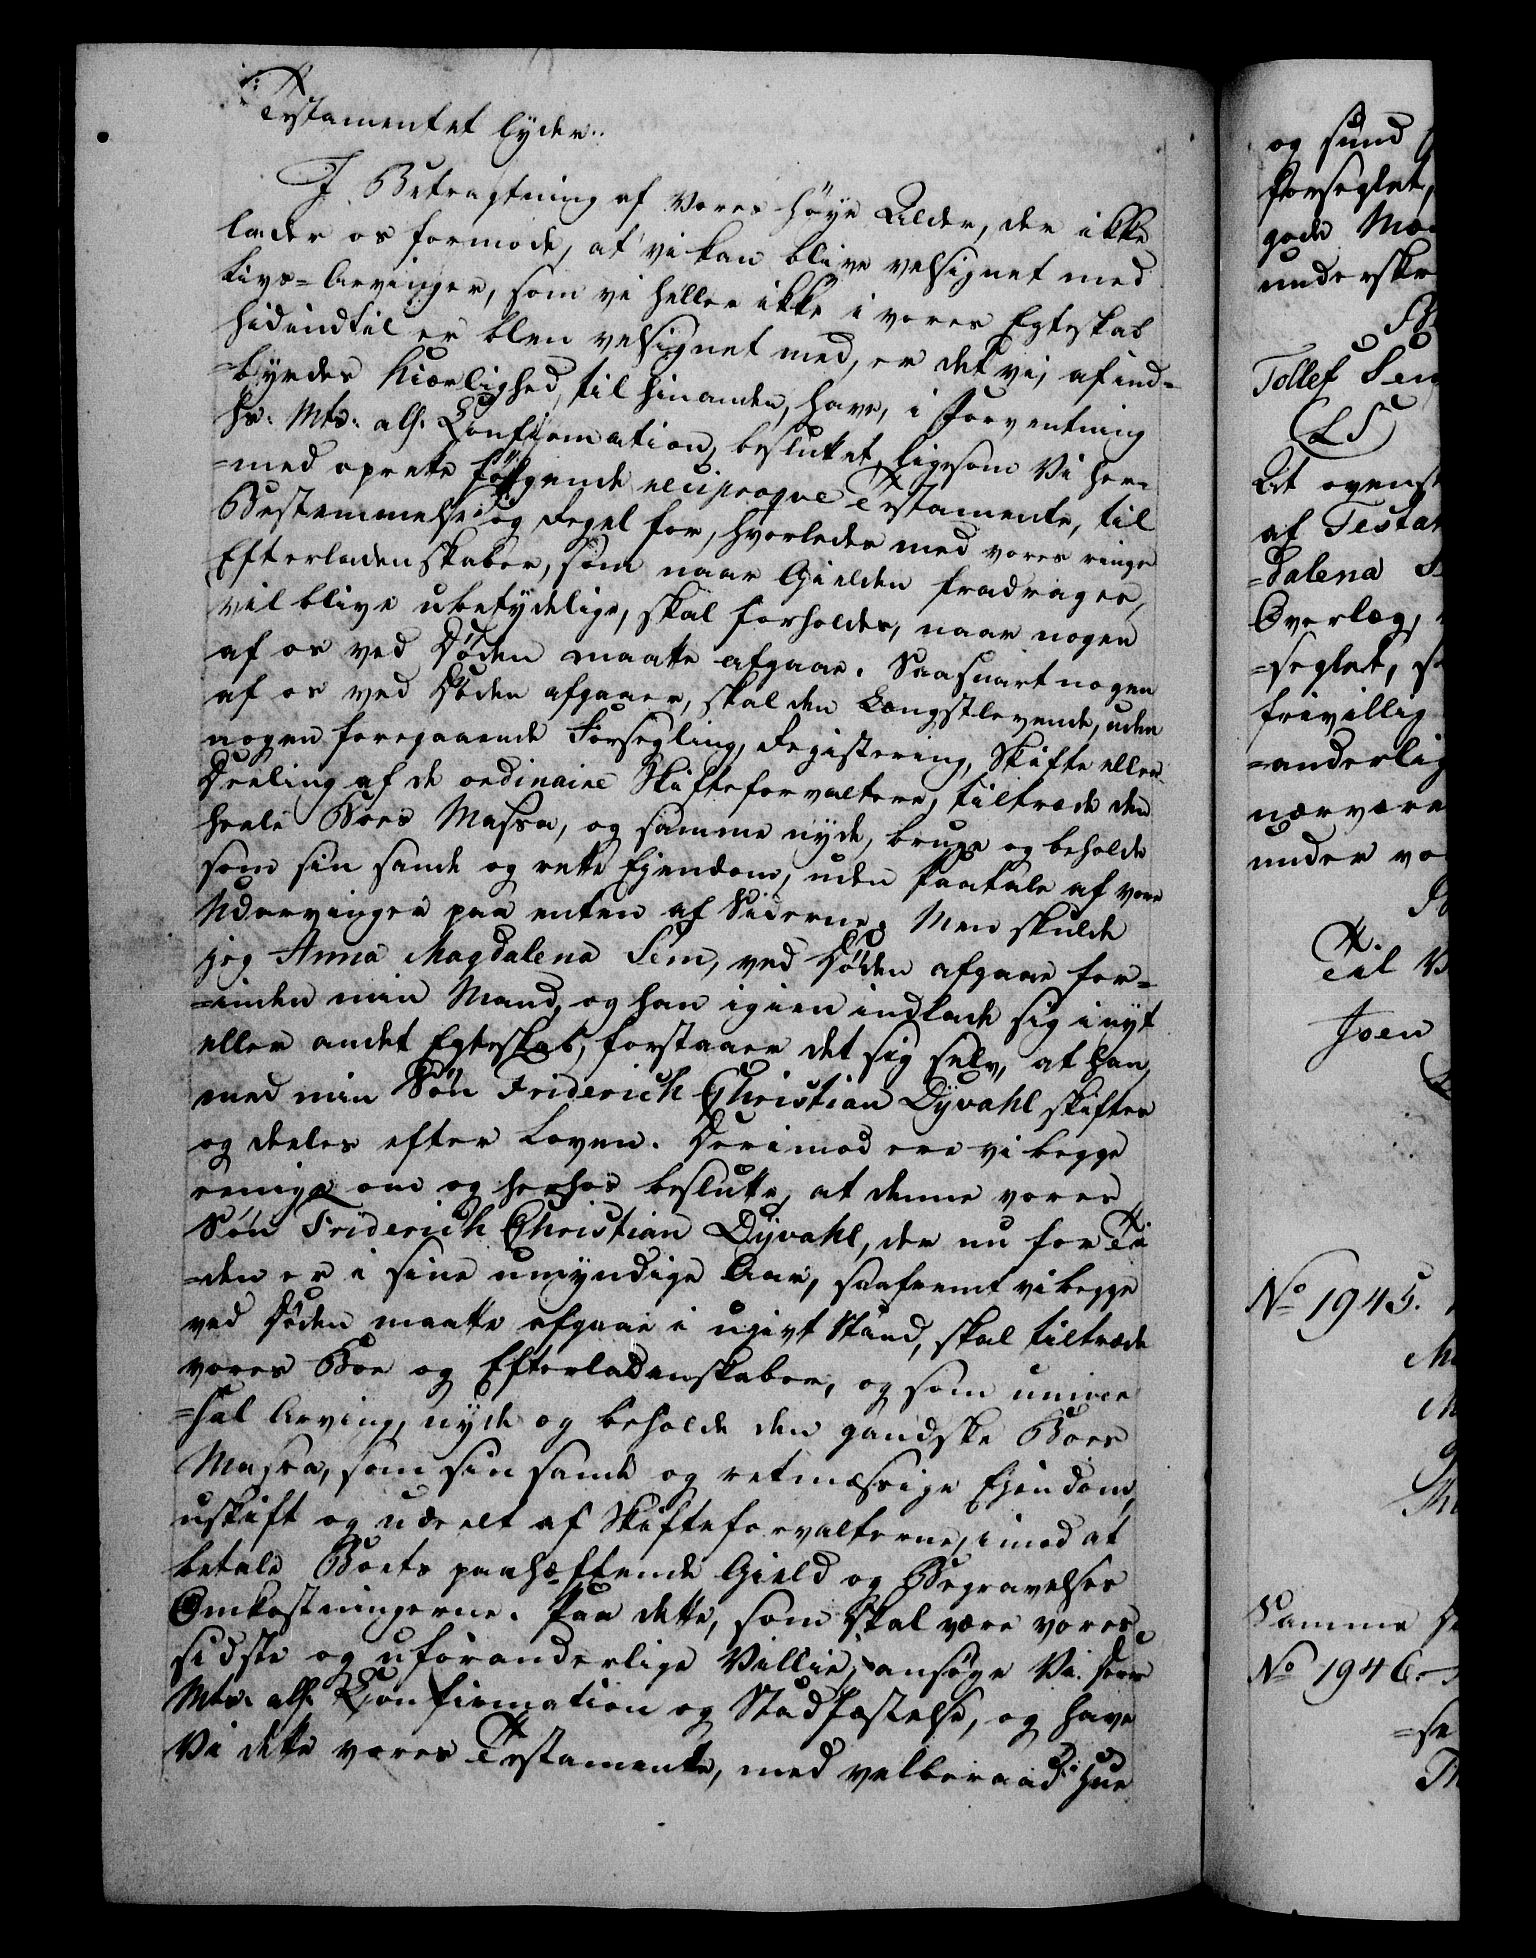 Testamentet lyder:
I Betragtning af Vores høye Alder, der ikke
lader os formode, at vi kan blive velsignet med
Livs=Arvinger, som vi heller ikke i vores Egteskab
hidindtil er bleven velsignet med, er det vi, af ind=
=byrdes Kiærlighed til hinanden, have, i Forventning
Hs. Mts. alh. Confirmation, besluttet, ligesom Vi her=
=med oprette følgende reciproqve Testamente, til
Bestemmelse og Regel for, hvorledes med vores ringe
Efterladenskaber, som naar Gielden fradrages,
vil blive ubetydelige, skal forholdes, naar nogen
af os ved Døden maatte afgaae. Saasnart nogen
af os ved Døden afgaaer, skal den Længstlevende, uden
nogen foregaaende Forsegling, Registering, Skifte eller
Deeling af de ordinaire Skifteforvaltere, tiltræde den
heele Boes Massa, og samme nyde, bruge og beholde
som sin sande og rette Ejendom, uden Paatale af vore
Udarvinger paa enten af Siderne. Men skulde
jeg Anna Magdalena Sem, ved Døden afgaae for=
=inden min Mand, og han igien indlade sig i nyt
eller andet Egteskab, forstaaer det sig selv, at han,
med min Søn Friderich Christian Dyvahl skifter
og deeler efter Loven. Derimod ere vi begge
eenige om og herhos beslutte, at denne vores
Søn Friderich Christian Dyvahl, der nu for Ti=
=den er i sine umyndige Aar, saafremt vi begge
ved Døden maatte afgaae i ugivt Stand, skal tiltræde
vores Boe og Efterladenskaber, og som univer
=sal Arving, nyde og beholde den gandske Boes
Massa, som sin sande og retmæssige Ejendom,
uskift og udeelt af Skifteforvalterne, imod at
betale Boets paahæftende Gield og Begravelses
Omkostningerne. Paa dette, som skal være vores
sidste og uforanderlige Villie, ansøge Vi Deres
Mts. alh. Confirmation og Stadfæstelse, og have
Vi dette vores Testamente, med velberaad Hue
og sund
forseglet,
gode
undersk
Tollef Sem
(LS)
At ovenst
af Testam
=dalena
Overlæg,
=seglet,
frivillig
=anderlig
nærvære
under vo
Til V
Joen
No 1945.
Samme
No 1946.
=se